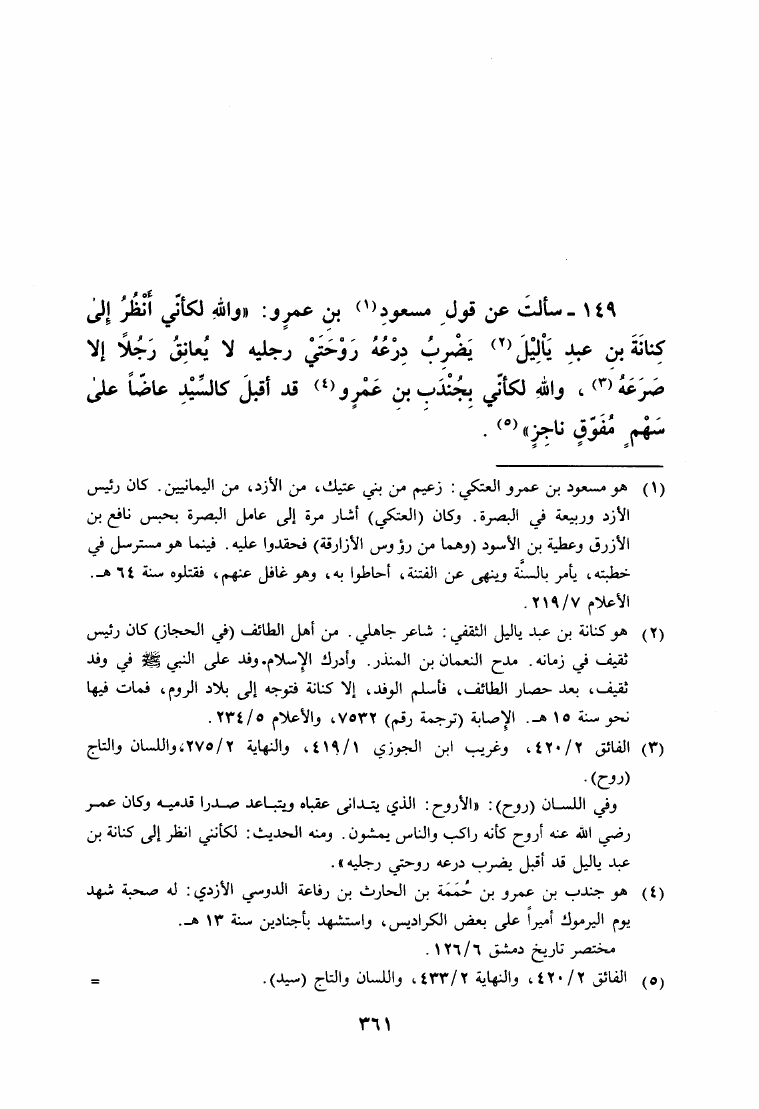 ١٤٩ - سألتَ عن قول مسعودِ(١) بن عمرٍو: «والله لكأنّي أَنْظُرُ إلىٰ
كِنانَةَ بن عبدِ يَأْلِيْلَ(٢) يَضْرِبُ دِرْعُهُ رَوْحَتَيْ رجليه لا يُعانِقُ رَجُلًا إلا
صَرَعَهُ(٣)، والله لكأنّي بِجُنْدَبِ بن عَمْرٍو(٤) قد أقبلَ كالسِّيْدِ عاضّاً علىٰ
سَهْمٍ مُفَوَّقٍ ناجِزٍ»(٥).
(١) هو مسعود بن عمرو العتكي: زعيم من بني عتيك، من الأزد، من اليمانيين. كان رئيس
الأزد وربيعة في البصرة. وكان (العتكي) أشار مرة إلى عامل البصرة بحبس نافع بن
الأزرق وعطية بن الأسود (وهما من رؤوس الأزارقة) فحقدوا عليه. فينما هو مسترسل في
خطبته، يأمر بالسنَّة وينهى عن الفتنة، أحاطوا به، وهو غافل عنهم، فقتلوه سنة ٦٤ هـ.
الأعلام ٢١٩/٧.
(٢) هو كنانة بن عبد ياليل الثقفي: شاعر جاهلي. من أهل الطائف (في الحجاز) كان رئيس
ثقيف في زمانه. مدح النعمان بن المنذر. وأدرك الإسلام.وفد على النبي ﷺ في وفد
ثقيف، بعد حصار الطائف، فأسلم الوفد، إلا كنانة فتوجه إلى بلاد الروم، فمات فيها
نحو سنة ١٥ هـ. الإصابة (ترجمة رقم) ٧٥٣٢، والأعلام ٢٣٤/٥.
(٣) الفائق ٤٢٠/٢، وغريب ابن الجوزي ٤١٩/١، والنهاية ٢٧٥/٢،واللسان والتاج
(روح).
وفي اللسان (روح): «الأروح: الذي يتدانى عقباه ويتباعد صدرا قدميه وكان عمر
رضي الله عنه أروح كأنه راكب والناس يمشون. ومنه الحديث: لكأنني انظر إلى كنانة بن
عبد ياليل قد أقبل يضرب درعه روحتي رجليه».
(٤) هو جندب بن عمرو بن حُمَمَة بن الحارث بن رفاعة الدوسي الأزدي: له صحبة شهد
يوم اليرموك أميراً على بعض الكراديس، واستشهد بأجنادين سنة ١٣ هـ.
مختصر تاريخ دمشق ١٢٦/٦.
(٥) الفائق ٤٢٠/٢، والنهاية ٤٣٣/٢، واللسان والتاج (سيد). =
٣٦١